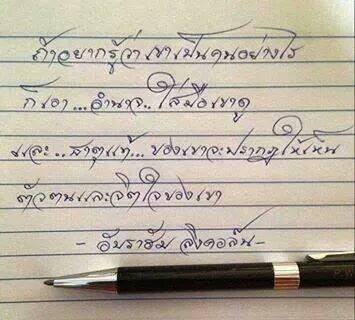 ถ้าอยากรู้ว่าเขาเป็นคนอย่างไร
ก็เอา...อำนาจ..ใส่มือเขาดู
และ..ธาตุแท้...ของเขาจะปรากฏให้เห็น
ตัวตนและจิตใจของเขา
- อับราฮัม ลิงคอล์น -